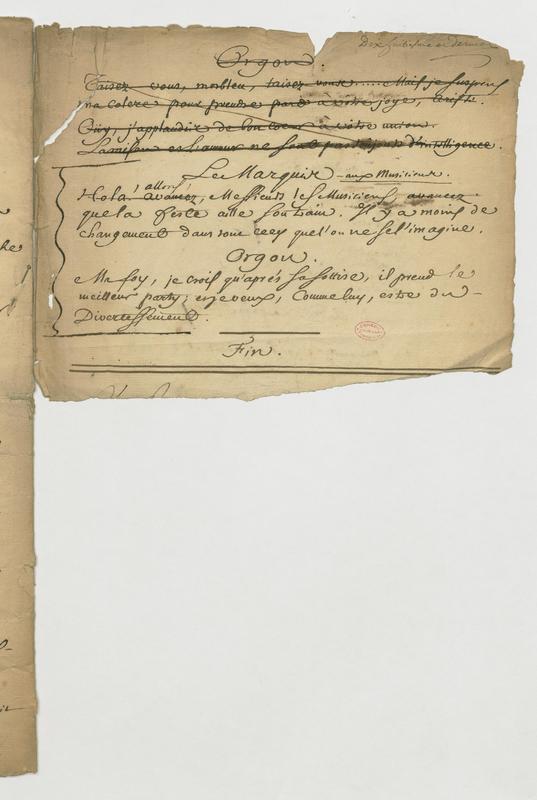 Dix huitiesme et dernier
Orgon.
Taisez vous, morbleu, taisez vous .... Mais je suspens
ma colere pour prendre part à votre joye,
Ouy, j'applaudir de bon coeur à votre union.
et l'amour ne sont pas toujours d'intelligence.
Le Marquis aux Musiciens.
Hola! allons! avancez, Messieurs les Musiciens, avancez
que la feste aille son train. Il y a moins de
changement dans tout cecy que l'on ne se l'imagine.
Orgon.
Ma foy, je crois qu'aprés sa sottise, il prend le
meilleur party; et je veux, comme luy, estre du
Divertissement.
Fin.